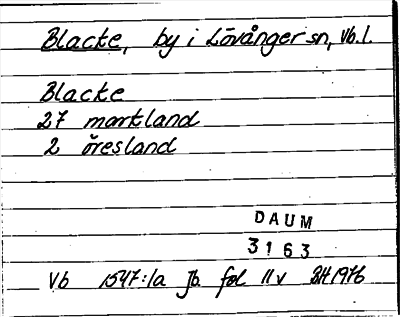 Blacke, by i Lövånger sn, Vb.l.
Blacke
27 markland
2 öresland
DAUM
3163
Vb 1547:1a Jb. fol 11v BH 1976